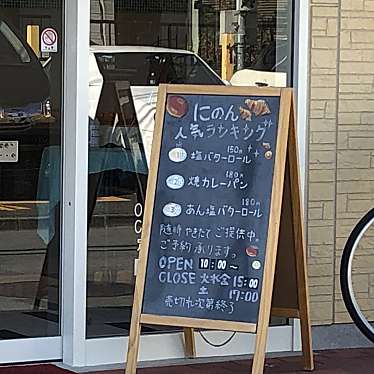 にのん
人気ランキング
150円
1 塩バターロール
180円
2 焼カレーパン
180円
3 あん塩バターロール
随時 やきたて ご提供中。
ご予約 承ります。
OPEN 10:00〜
CLOSE 火水金 15:00
土 17:00
売切れ次第終了